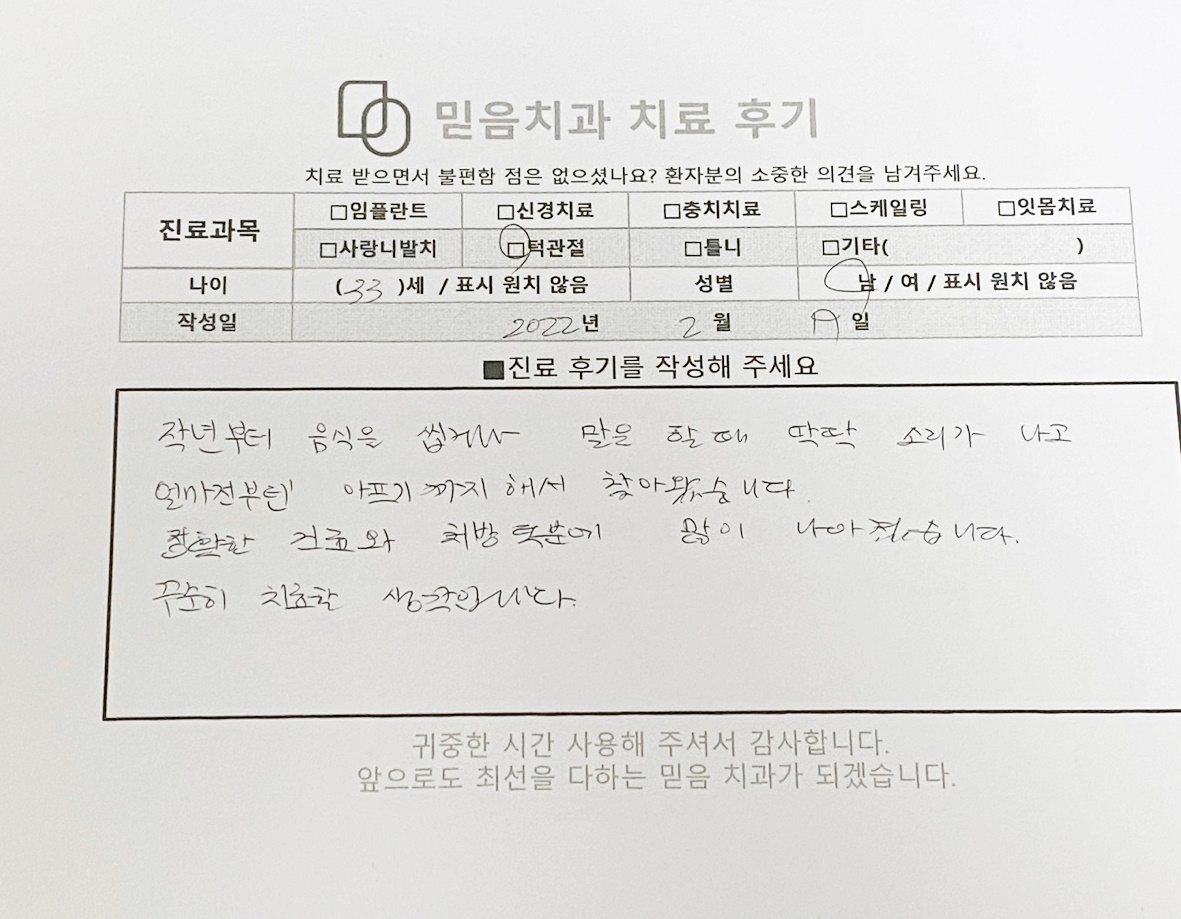 믿음치과 치료 후기
치료 받으면서 불편함 점은 없으셨나요? 환자분의 소중한 의견을 남겨주세요.
진료과목 □임플란트 □신경치료 □충치치료 □스케일링 □잇몸치료
□사랑니발치 □턱관절 □틀니 □기타( )
나이 (33)세 / 표시 원치 않음 성별 남 / 여 / 표시 원치 않음
작성일 2022년 2월 일
■진료 후기를 작성해 주세요
작년부터 음식을 씹거나 말을 할때 딱딱 소리가 나고
얼마전부턴 아프기까지 해서 찾아왔습니다.
진료와 처방 덕분에 많이 나아졌습니다.
꾸준히 치료할 생각입니다.
귀중한 시간 사용해 주셔서 감사합니다.
앞으로도 최선을 다하는 믿음 치과가 되겠습니다.